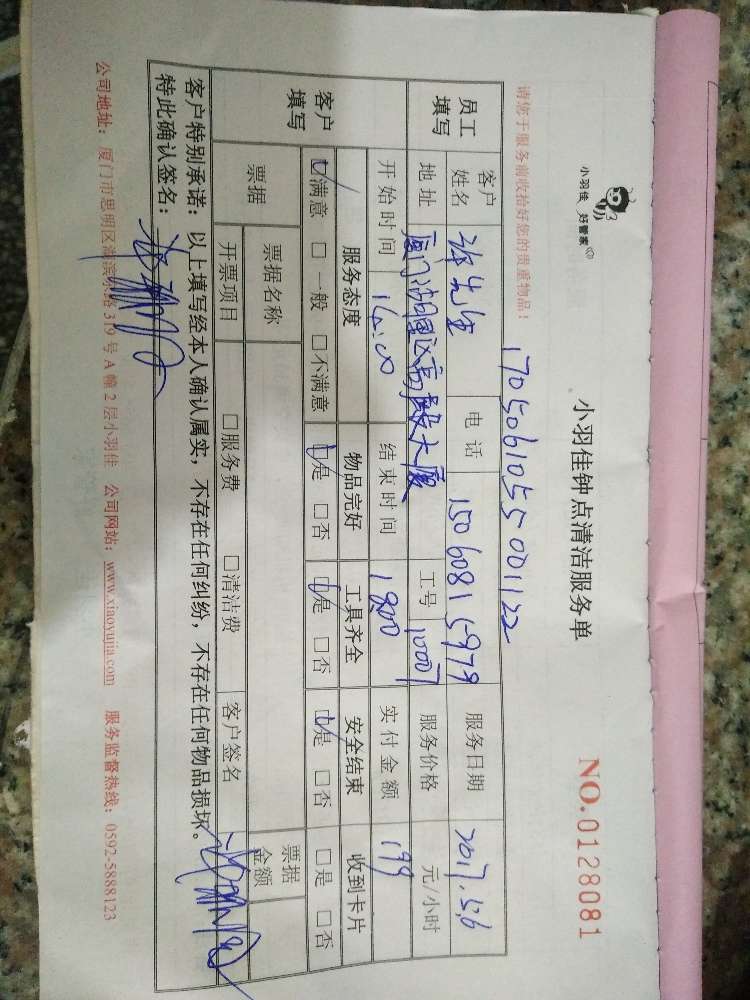 小羽佳 好管家
小羽佳钟点清洁服务单
NO.0128081
请您于服务前收拾好您的贵重物品！
170506105500122
员工填写 客户姓名 先生 电话 15060815979 服务日期 2017.5.6
地址 厦门湖里区高殿大厦 工号 10007 服务价格 元/小时
客户填写 开始时间 14:00 结束时间 18:00 实付金额 199
服务态度 物品完好 工具齐全 安全结束 收到卡片
☑满意 □一般 □不满意 ☑是 □否 ☑是 □否 ☑是 □否 □是 □否
票据 票据名称 票据金额
开票项目 □服务费 □清洁费 客户签名
客户特别承诺：以上填写经本人确认属实，不存在任何纠纷，不存在任何物品损坏。
特此确认签名：
公司地址：厦门市思明区湖滨东路319号A幢2层小羽佳 公司网站：www.xiaoyujia.com 服务监督热线：0592-5888123